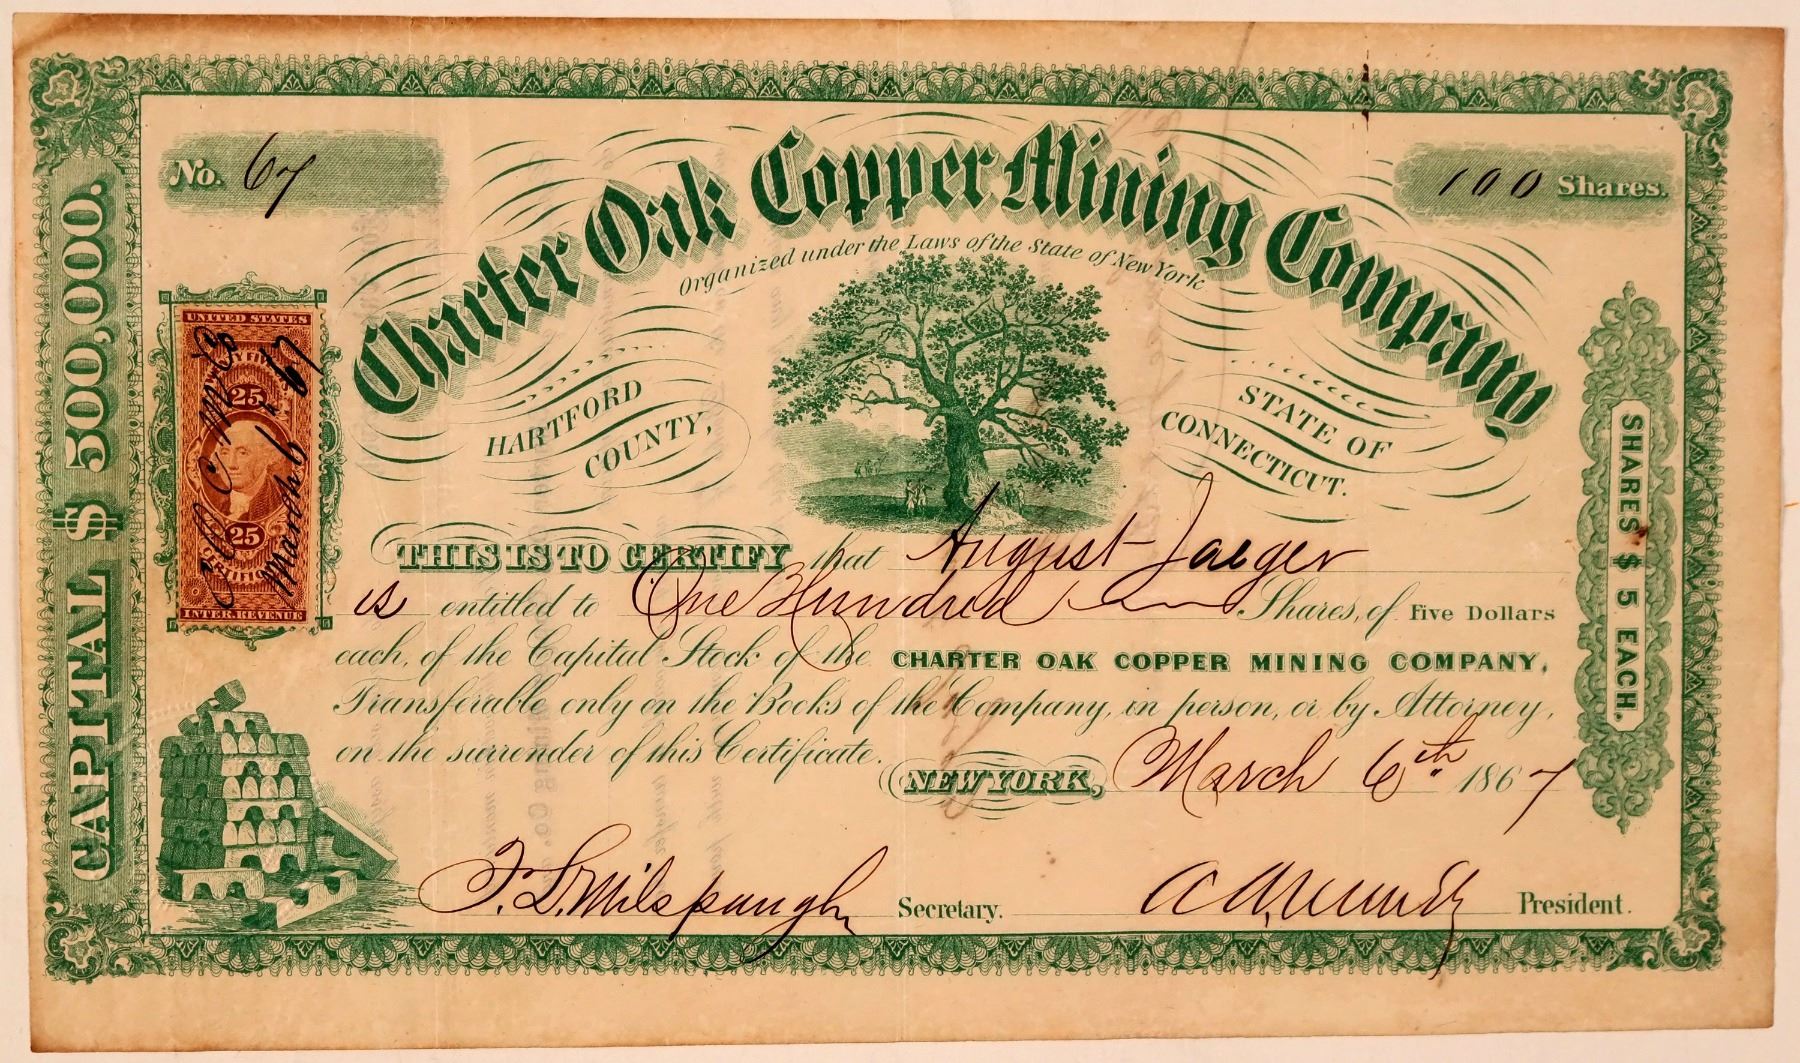 No. 67
100 Shares.
Charter Oak Copper Mining Company
Organized under the Laws of the State of New York
HARTFORD COUNTY,
STATE OF CONNECTICUT.
CAPITAL $ 500,000.
SHARES $ 5 EACH.
UNITED STATES
25
25
INTER. REVENUE
March 6 67
THIS IS TO CERTIFY that August Jaeger
is entitled to One Hundred Shares, of Five Dollars
each, of the Capital Stock of the CHARTER OAK COPPER MINING COMPANY,
Transferable only on the Books of the Company, in person, or by Attorney,
on the surrender of this Certificate.
NEW YORK, March 6th 1867
F. L. Milspaugh Secretary.
President.